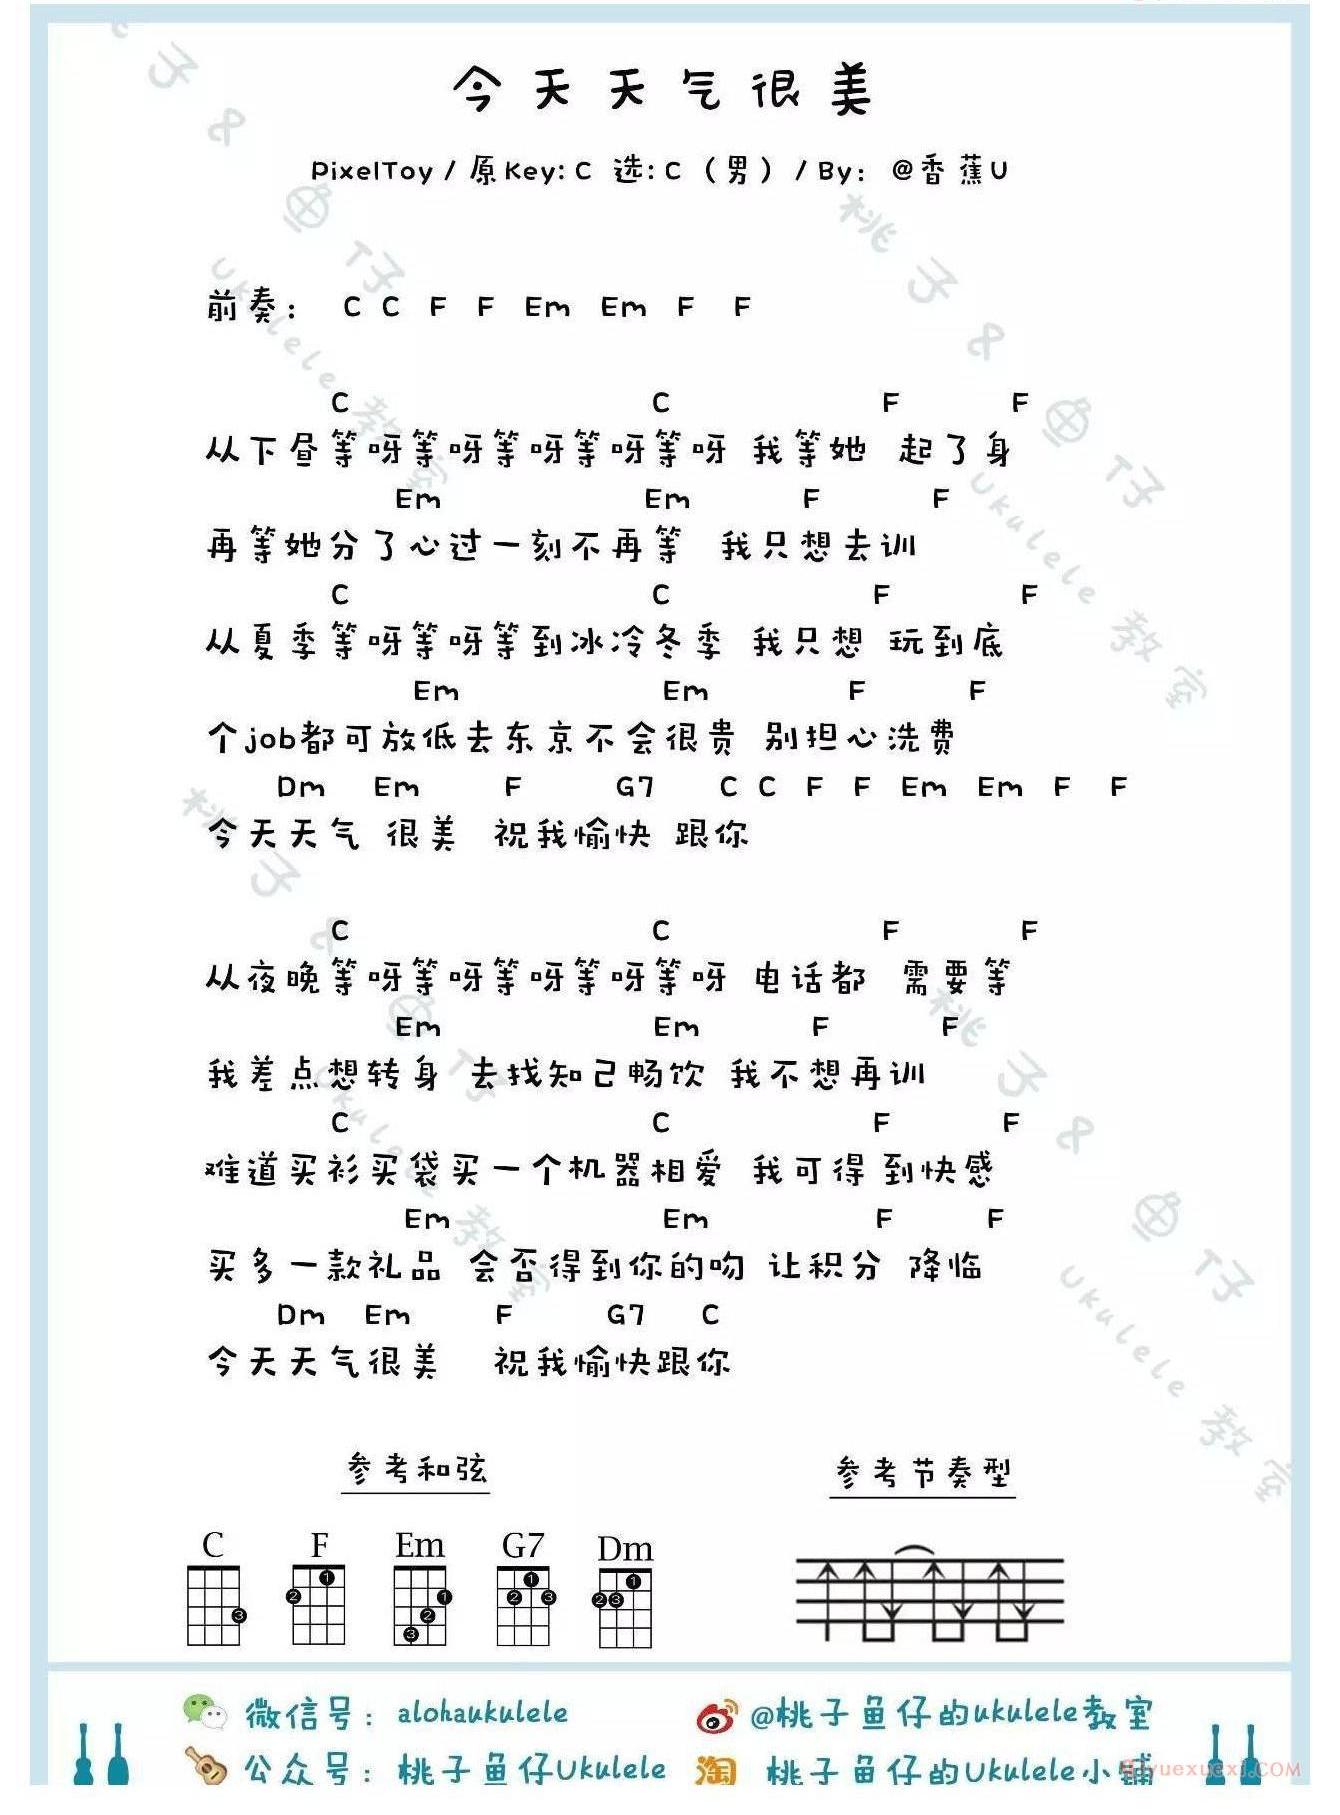 今天天气很美
PixelToy / 原Key: C 选: C （男） / By: @香蕉U
前奏： C C F F Em Em F F
C C F F
从下昼等呀等呀等呀等呀等呀 我等她 起了身
Em Em F F
再等她分了心过一刻不再等 我只想去训
C C F F
从夏季等呀等呀等到冰冷冬季 我只想 玩到底
Em Em F F
个job都可放低去东京不会很贵 别担心洗费
Dm Em F G7 C C F F Em Em F F
今天天气 很美 祝我愉快 跟你
C C F F
从夜晚等呀等呀等呀等呀等呀 电话都 需要等
Em Em F F
我差点想转身 去找知己畅饮 我不想再训
C C F F
难道买衫买袋买一个机器相爱 我可得到快感
Em Em F F
买多一款礼品 会否得到你的吻 让积分 降临
Dm Em F G7 C
今天天气很美 祝我愉快跟你
参考和弦 参考节奏型
C F Em G7 Dm
3 2 1 1 2 3 2 1 3 2 3 1
微信号： alohaukulele @桃子鱼仔的ukulele教室
公众号： 桃子鱼仔Ukulele 淘 桃子鱼仔的Ukulele小铺
桃子&鱼仔
Ukulele教室
桃子&鱼仔
Ukulele教室
桃子&鱼仔
Ukulele教室
桃子&鱼仔
Ukulele教室